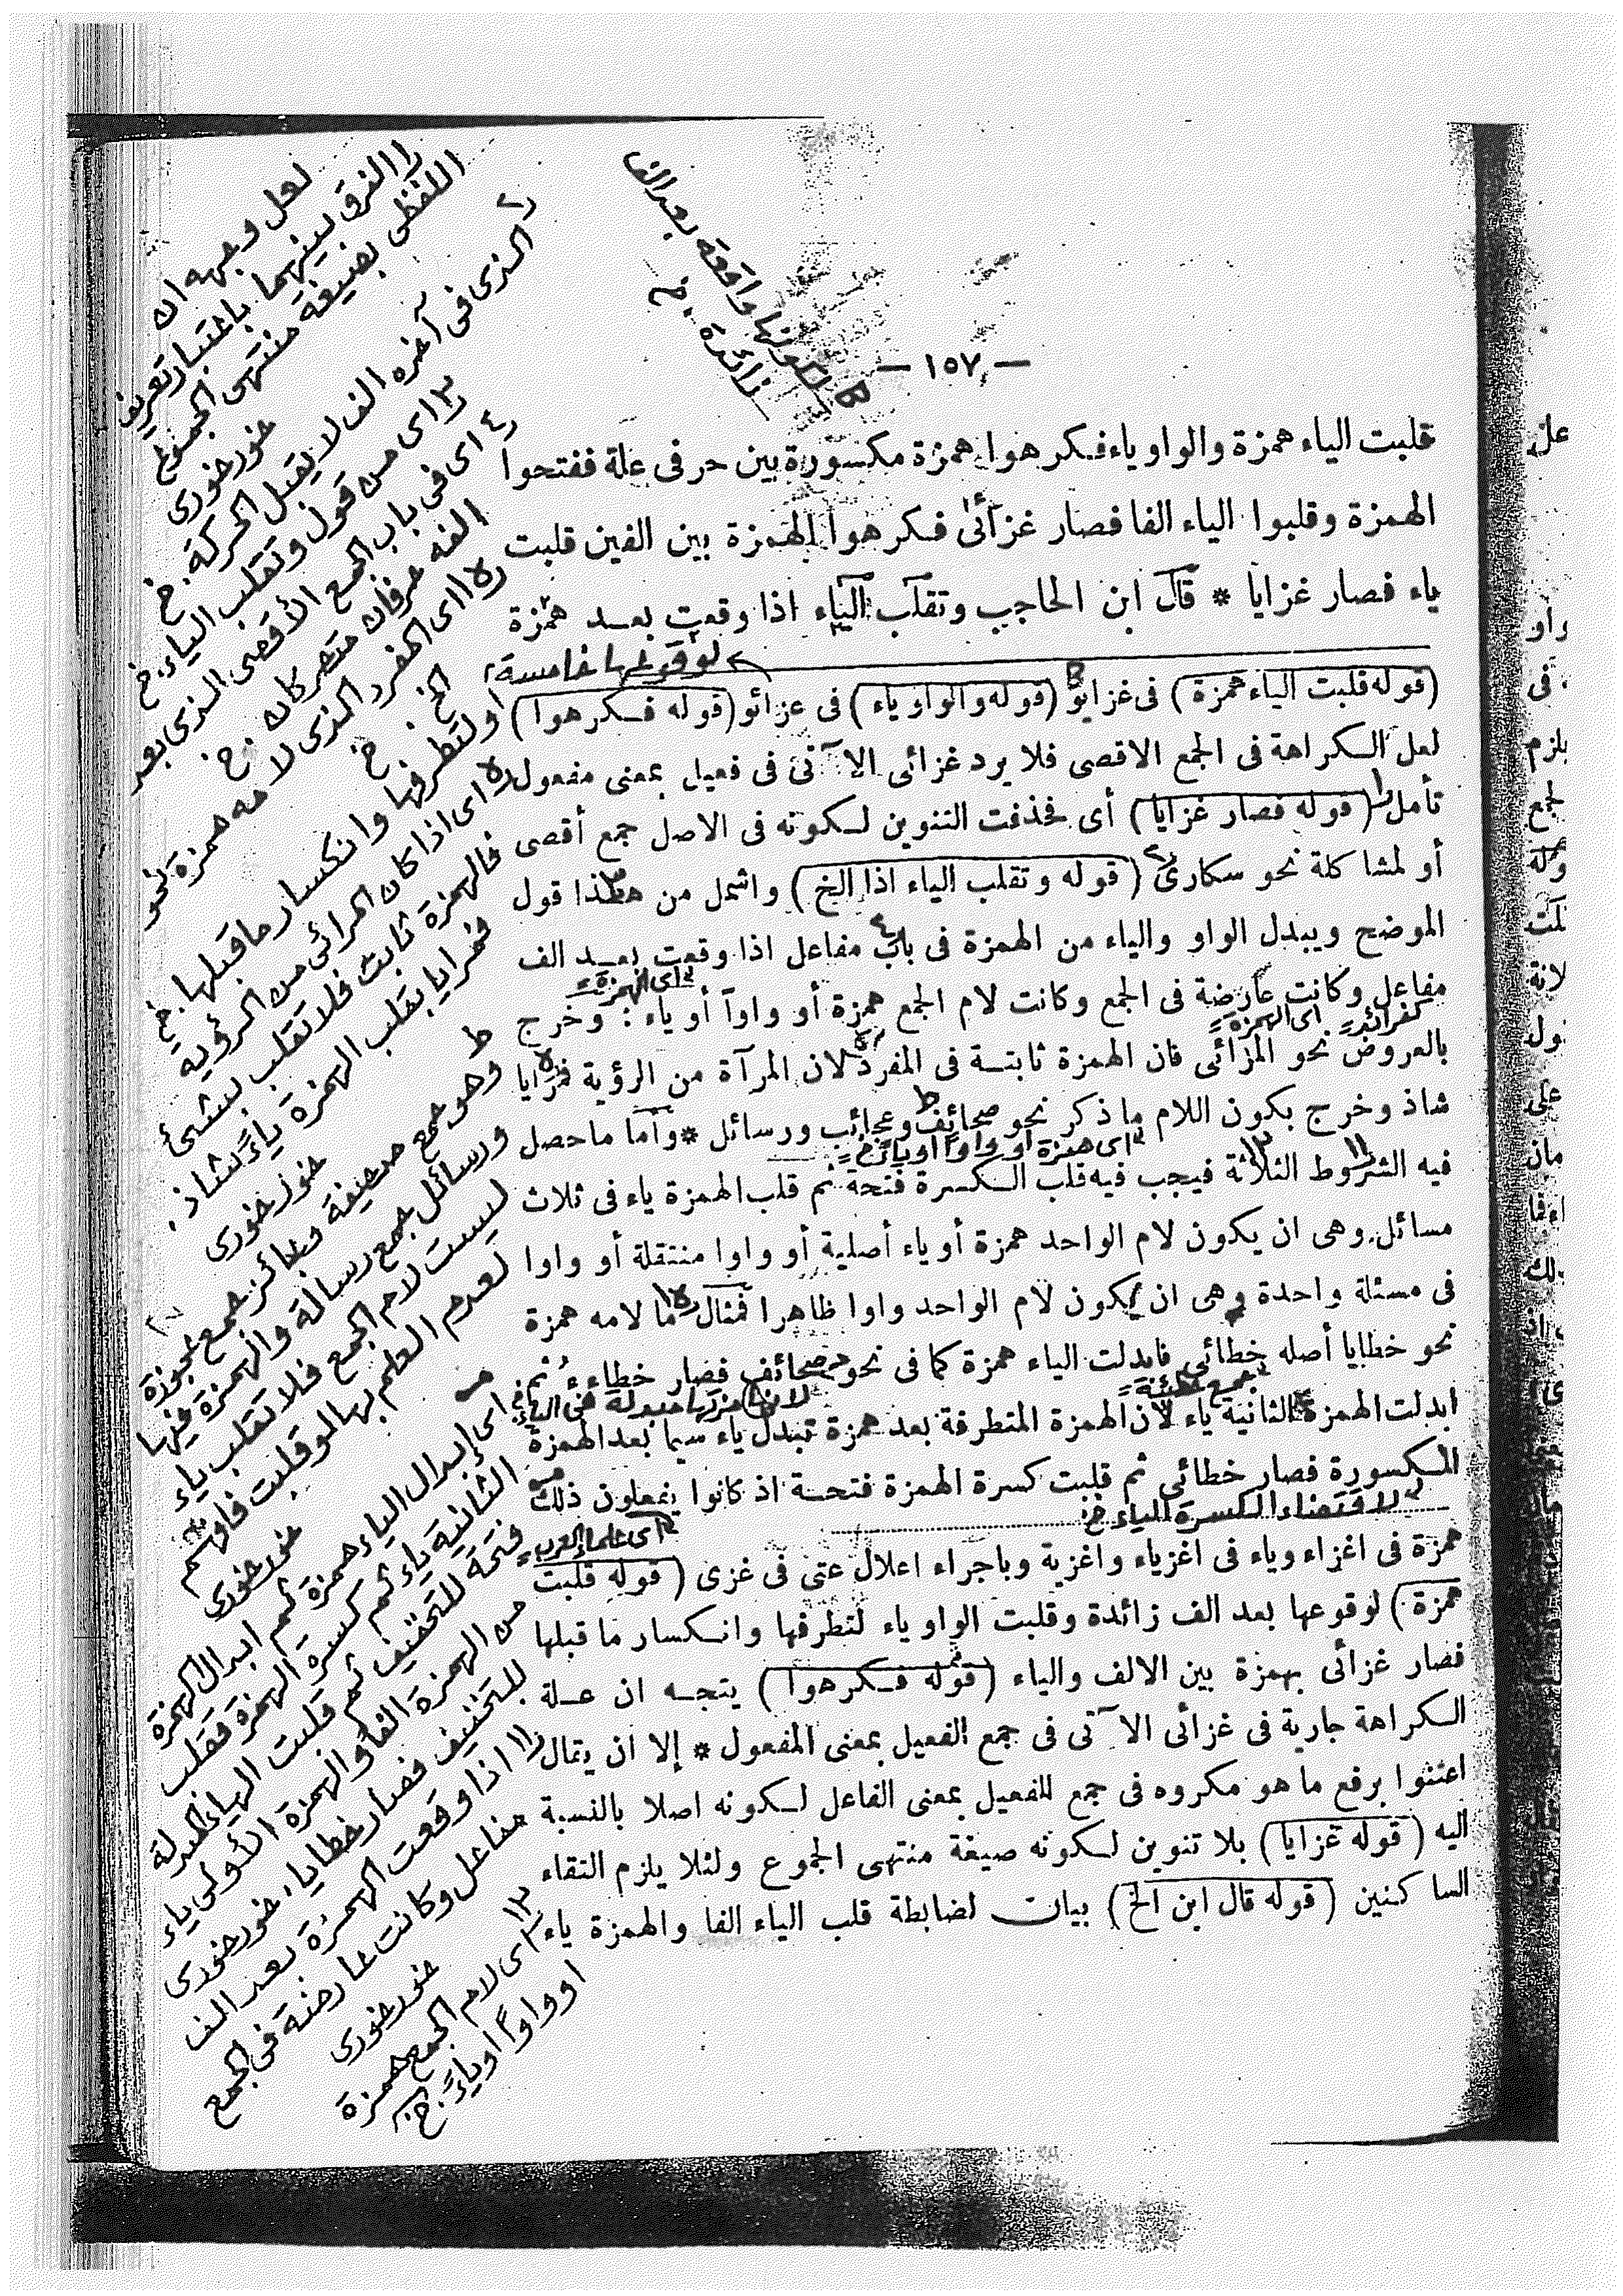 — ١٥٧ —
قلبت الياء همزة والواو ياء فكرهوا همزة مكسورة بين حرفى علة ففتحوا
الهمزة وقلبوا الياء الفا فصار غزائى فكرهوا الهمزة بين الفين قلبت
ياء فصار غزايا * قال ابن الحاجب وتقلب الياء اذا وقعت بعد همزة
لوقوعها خامسة
(قوله قلبت الياء همزة) فى غزايو (قوله والواو ياء) فى غزائو (قوله فكرهوا)
لعل الكراهة فى الجمع الاقصى فلا يرد غزائى الآتى فى فعيل بمعنى مفعول
تأمل (قوله فصار غزايا) أى فحذفت التنوين لكونه فى الاصل جمع أقصى
أو لمشاكلة نحو سكارى (قوله وتقلب الياء اذا الخ) واشمل من هذا قول
الموضح ويبدل الواو والياء من الهمزة فى باب مفاعل اذا وقعت بعد الف
اى الهمزة
مفاعل وكانت عارضة فى الجمع وكانت لام الجمع همزة أو واوا أو ياء : وخرج
اى الهمزة
بالعروض نحو المرائى فان الهمزة ثابتة فى المفرد لان المرآة من الرؤية فمرايا
شاذ وخرج بكون اللام ما ذكر نحو صحائف وعجائب ورسائل * وأما ما حصل
اى همزة او واوا او ياء خ
فيه الشروط الثلاثة فيجب فيه قلب الكسرة فتحة ثم قلب الهمزة ياء فى ثلاث
مسائل وهى ان يكون لام الواحد همزة أو ياء أصلية أو واوا منتقلة أو واوا
فى مسئلة واحدة وهى ان يكون لام الواحد واوا ظاهرا فمثال ما لامه همزة
نحو خطايا أصله خطائى فابدلت الياء همزة كما فى نحو صحائف فصار خطاءء ثم
جمع خطيئة
ابدلت الهمزة الثانية ياء لان الهمزة المتطرفة بعد همزة تبدل ياء سيما بعد الهمزة
المكسورة فصار خطائى ثم قلبت كسرة الهمزة فتحة اذ كانوا يفعلون ذلك
لاقتضاء الكسرة الياء خ
اى علماء العرب
همزة فى اغزاء وياء فى اغزياء واغزية وباجراء اعلال عتى فى غزى (قوله قلبت
همزة) لوقوعها بعد الف زائدة وقلبت الواو ياء لتطرفها وانكسار ما قبلها
فصار غزائى بهمزة بين الالف والياء (قوله فكرهوا) يتجه ان علة
الكراهة جارية فى غزائى الآتى فى جمع الفعيل بمعنى المفعول * إلا ان يقال
اعتنوا برفع ما هو مكروه فى جمع للفعيل بمعنى الفاعل لكونه اصلا بالنسبة
اليه (قوله غزايا) بلا تنوين لكونه صيغة منتهى الجموع ولئلا يلزم التقاء
الساكنين (قوله قال ابن الخ) بيان لضابطة قلب الياء الفا والهمزة ياء
لكونها واقعة بعد الف
زائدة . خ
لعل وجهه ان
الفرق بينهما باعتبار تعريف
اللفظى بصيغة منتهى الجموع
خورخورى
الذى فى آخره الف لا يقبل الحركة . خ
اى من قول وتقلب الياء . خ
اى فى باب الجمع الأقصى الذى بعد
الفه حرفان متحركان . خ
اى المفرد الذى لامه همزة نحو
الخ . خ
او لتطرفها وانكسار ما قبلها خ
اى اذا كان المرائى من الرؤية
فالهمزة ثابت فلا تقلب بشئ
فمرايا بقلب الهمزة ياء شاذ .
خورخورى
وهو جمع صحيفة وعجائز جمع عجوزة
ورسائل جمع رسالة والهمزة فيها
ليست لام الجمع فلا تقلب ياء
لعدم العلم بها لو قلبت فافهم
خورخورى
اى إبدال الياء همزة ثم ابدال الهمزة
الثانية ياء ثم كسرة الهمزة فقلب
فتحة للتخفيف ثم قلبت الياء المبدلة
من الهمزة الفا والهمزة الأولى ياء
للتخفيف فصار خطايا . خورخورى
اذا وقعت الهمزة بعد الف
مفاعل وكانت عارضة فى الجمع
خورخورى
اى لام الجمع همزة
او واوا او ياء . خ